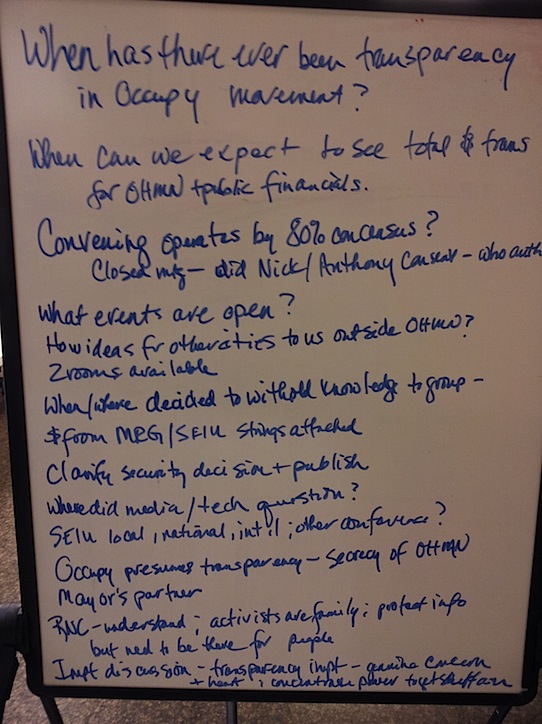 When has there ever been transparency
in Occupy movement?
When can we expect to see total $ trans
for OHMN + public financials.
Convening operates by 80% concensus?
Closed mtg — did Nick/Anthony Consent — who auth
What events are open?
How ideas fr other cities to us outside OHMN?
2 rooms available
When/where decided to withold knowledge to group —
$ from MPG/SEIU strings attached
Clarify security decision + publish
Where did media/tech question?
SEIU local, national, int'l; other conference?
Occupy presumes transparency — secrecy of OHMN
Mayor's partner
RNC — understand; activists are family; protect info
but need to be there for people
Impt discussion — transparency impt — genuine concern
+ heart; concentrate power to get